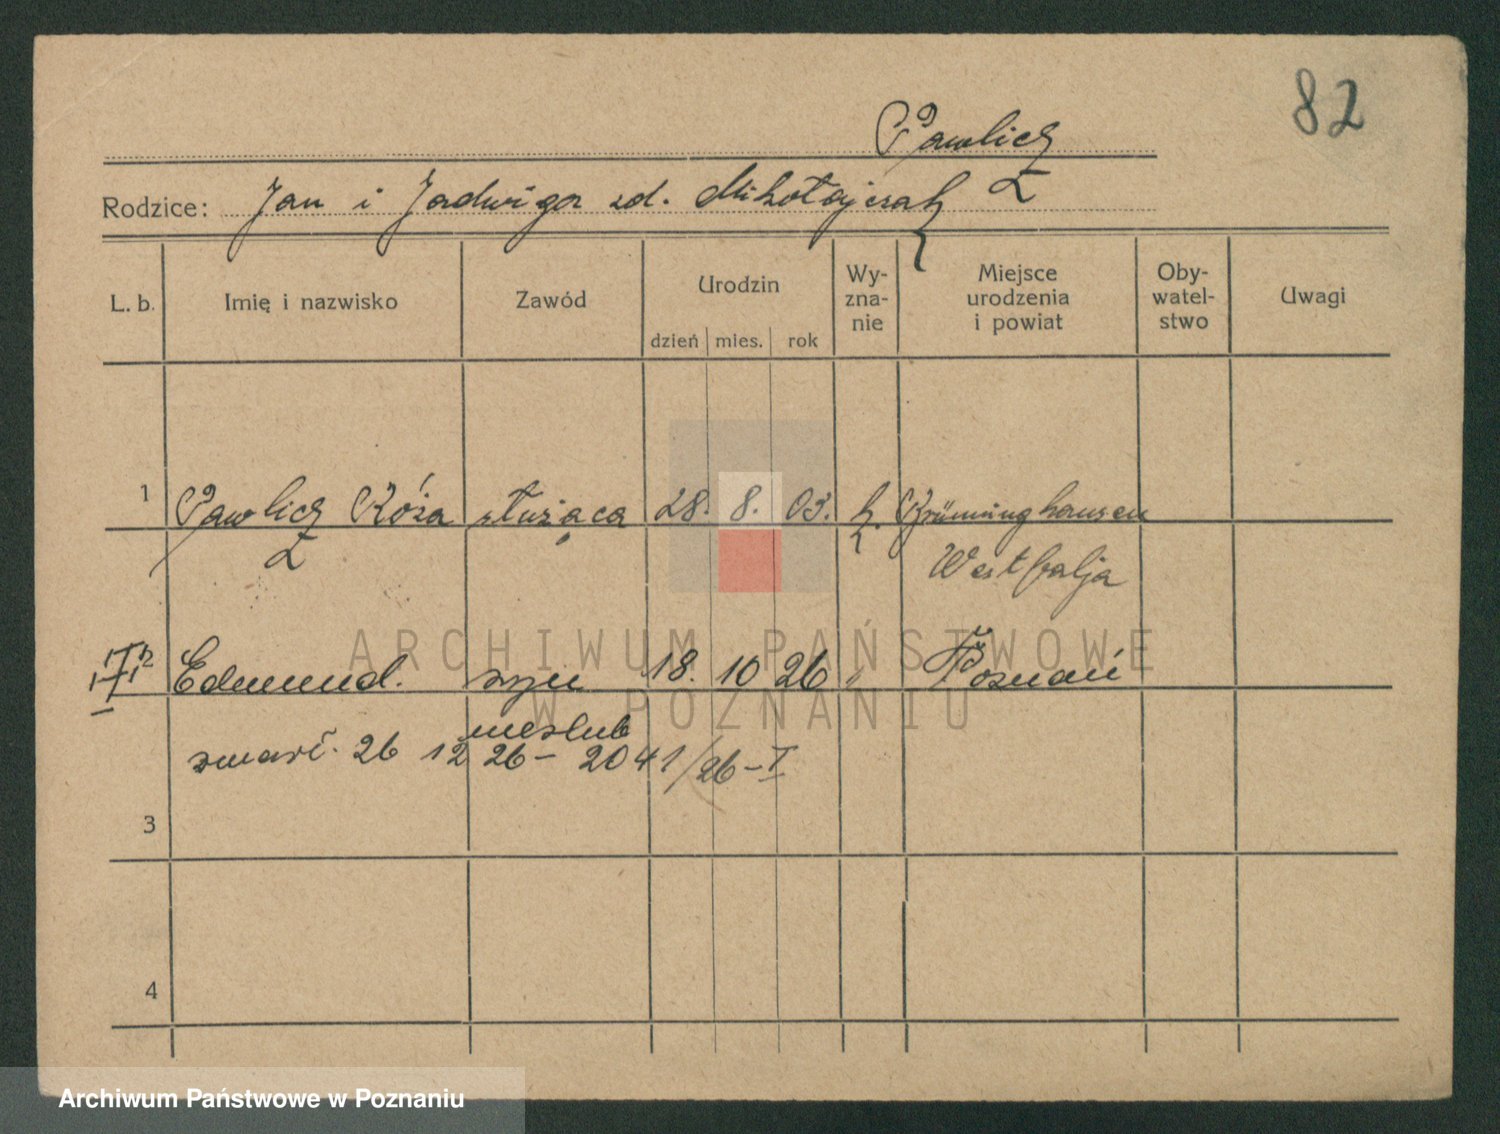 82
Pawlicz
Rodzice: Jan i Jadwiga zd. Mikołajczak
L. b. Imię i nazwisko Zawód Urodzin dzień mies. rok Wy-zna-nie Miejsce urodzenia i powiat Oby-watel-stwo Uwagi
1 Pawlicz Róża służąca 28. 8. 03. k. Krüninghausen
Westfalja
2 Edmund. syn 18. 10 26 " Poznań
nieślub
zmarł. 26 12 26 - 2041/26 - I
3
4
ARCHIWUM PAŃSTWOWE
W POZNANIU
Archiwum Państwowe w Poznaniu